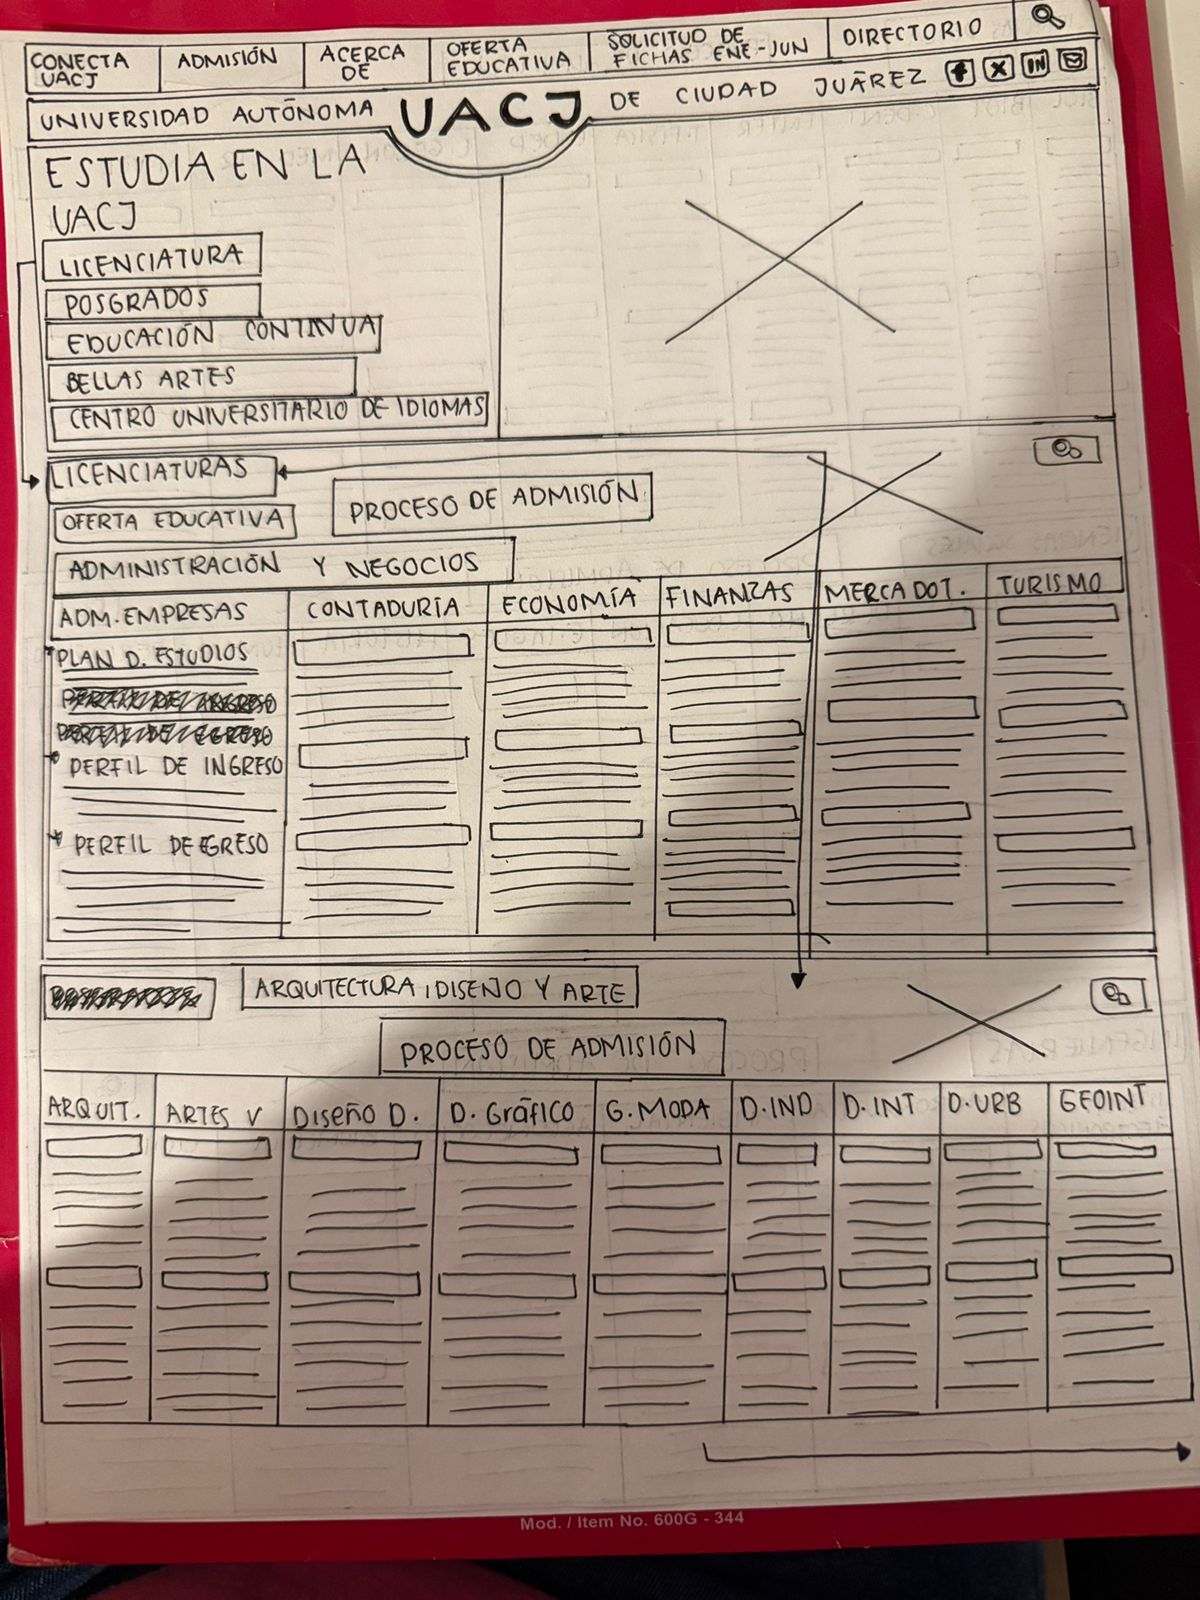 CONECTA
UACJ
ADMISIÓN
ACERCA
DE
OFERTA
EDUCATIVA
SOLICITUD DE
FICHAS ENE-JUN
DIRECTORIO
UNIVERSIDAD AUTÓNOMA UACJ DE CIUDAD JUÁREZ f X IN
ESTUDIA EN LA
UACJ
LICENCIATURA
POSGRADOS
EDUCACIÓN CONTINUA
BELLAS ARTES
CENTRO UNIVERSITARIO DE IDIOMAS
LICENCIATURAS
PROCESO DE ADMISIÓN
OFERTA EDUCATIVA
ADMINISTRACIÓN Y NEGOCIOS
ADM. EMPRESAS CONTADURÍA ECONOMÍA FINANZAS MERCADOT. TURISMO
* PLAN D. ESTUDIOS
* PERFIL DE INGRESO
* PERFIL DE EGRESO
ARQUITECTURA, DISEÑO Y ARTE
PROCESO DE ADMISIÓN
ARQUIT. ARTES V DISEÑO D. D. Gráfico G. MODA D. IND D. INT D. URB GEOINT
Mod. / Item No. 600G - 344